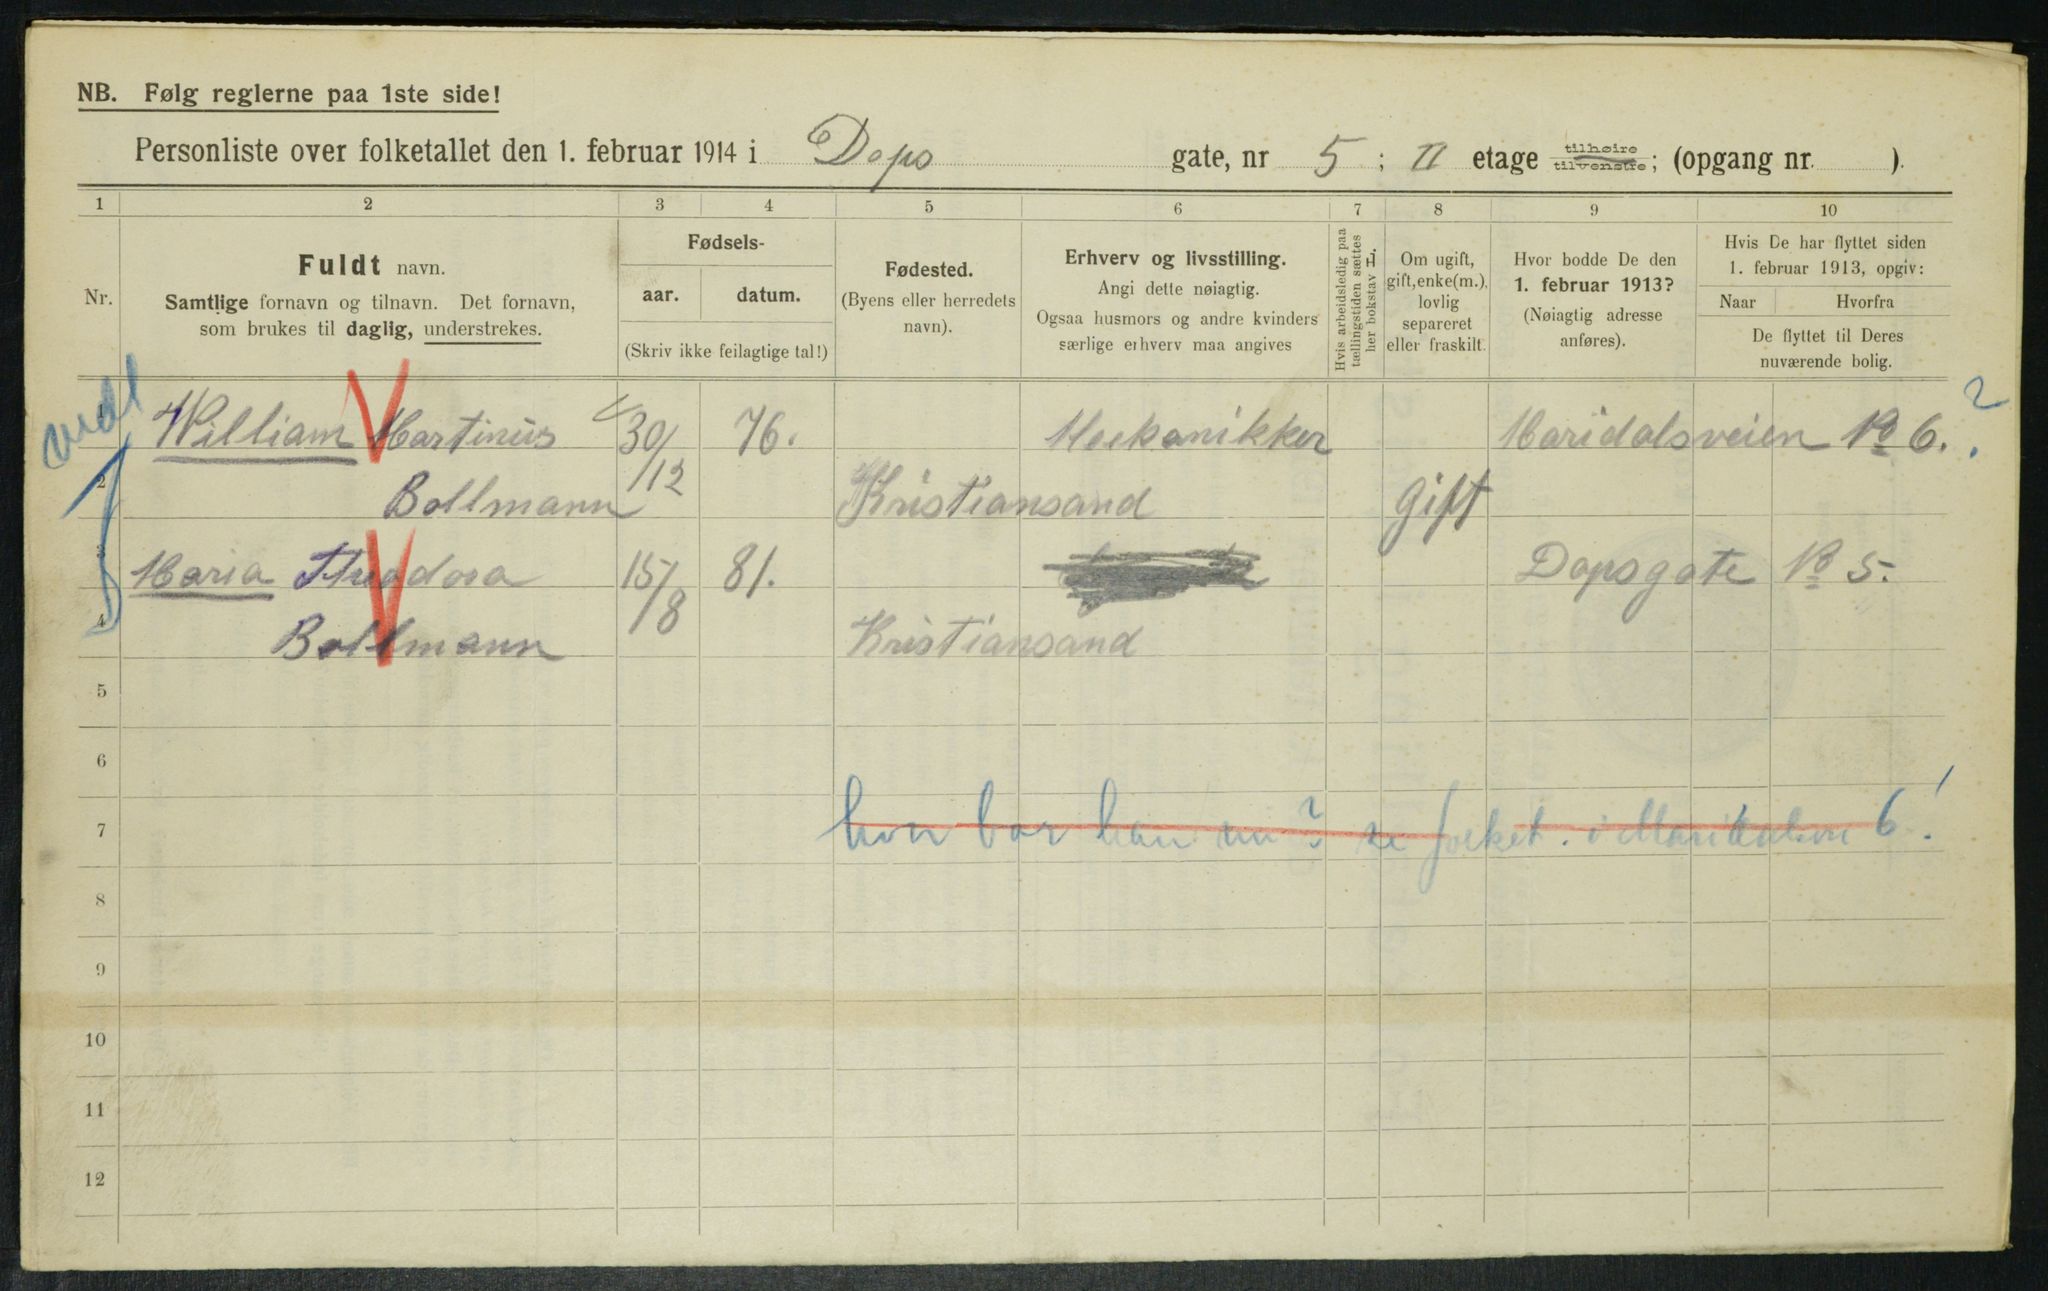 NB. Følg reglerne paa 1ste side!
Personliste over folketallet den 1. februar 1914 i Daps gate, nr 5 ; II etage tilhøire tilvenstre; (opgang nr. ).
1 2 3 4 5 6 7 8 9 10
Nr.
Fuldt navn.
Samtlige fornavn og tilnavn. Det fornavn,
som brukes til daglig, understrekes.
Fødsels-
aar. datum.
(Skriv ikke feilagtige tal!)
Fødested.
(Byens eller herredets
navn).
Erhverv og livsstilling.
Angi dette nøiagtig.
Ogsaa husmors og andre kvinders
særlige erhverv maa angives
Hvis arbeidsledig paa
tællingstiden sættes
her bokstav L.
Om ugift,
gift, enke(m.),
lovlig
separeret
eller fraskilt.
Hvor bodde De den
1. februar 1913?
(Nøiagtig adresse
anføres).
Hvis De har flyttet siden
1. februar 1913, opgiv:
Naar Hvorfra
De flyttet til Deres
nuværende bolig.
1 William Martinus 30/12 76. Meekanikker Maridalsveien No 6. ?
2 Bollmann Kristiansand gift
3 Maria Theodora 15/8 81. Dapsgate No 5.
4 Bollmann Kristiansand
5
6
7 hvor bor han nu? se folket. i Maridalsvn 6!
8
9
10
11
12